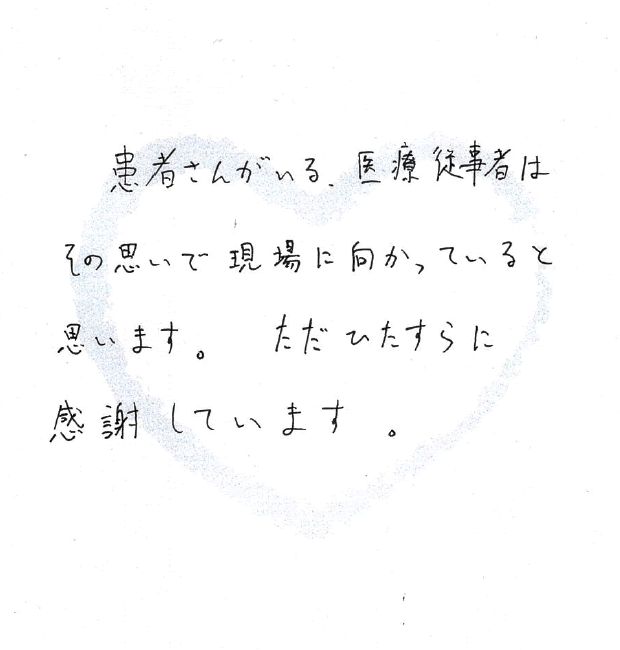 患者さんがいる、医療従事者は
その思いで現場に向かっていると
思います。 ただひたすらに
感謝しています。